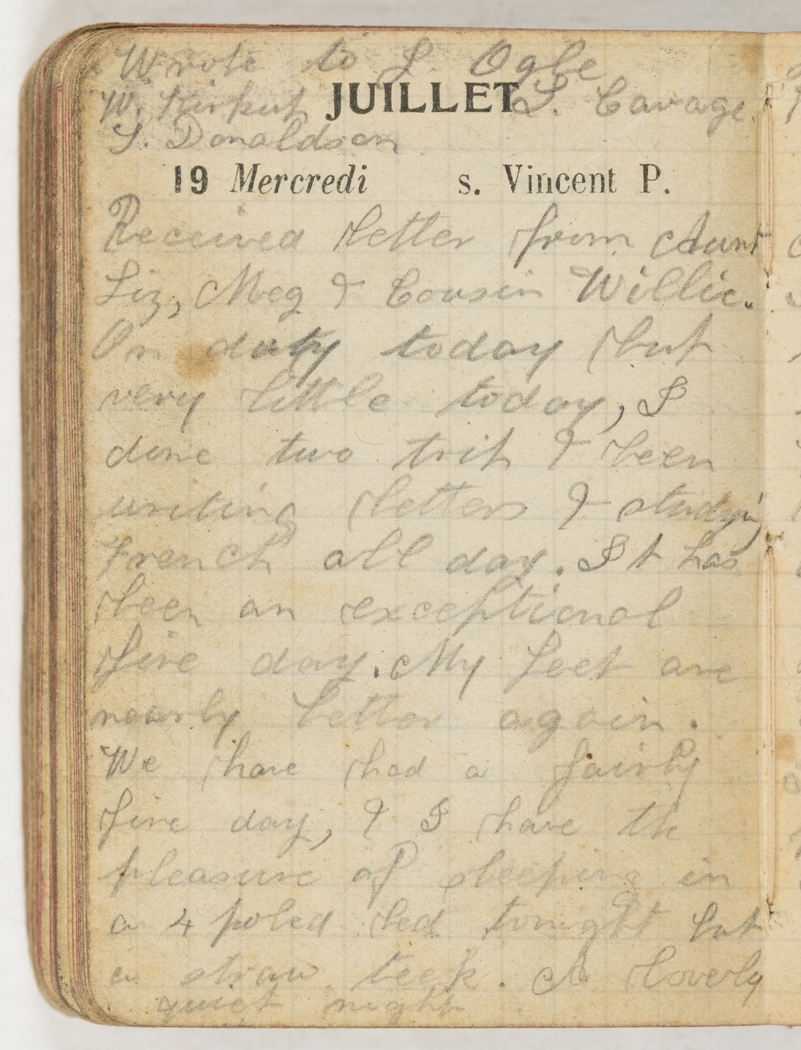 Wrote to J. Ogle
W. Kirkut JUILLET S. Cavage.
J. Donaldson
19 Mercredi s. Vincent P.
Received letter from Aunt
Liz, Meg & Cousin Willie.
On duty today but
very little today, I
done two trip & been
writing letters & studying
French all day. It has
been an exceptional
fine day. My feet are
nearly better again.
We have had a fairly
fine day, & I have the
pleasure of sleeping in
a 4 poled bed tonight but
a straw teek. A lovely
quiet night